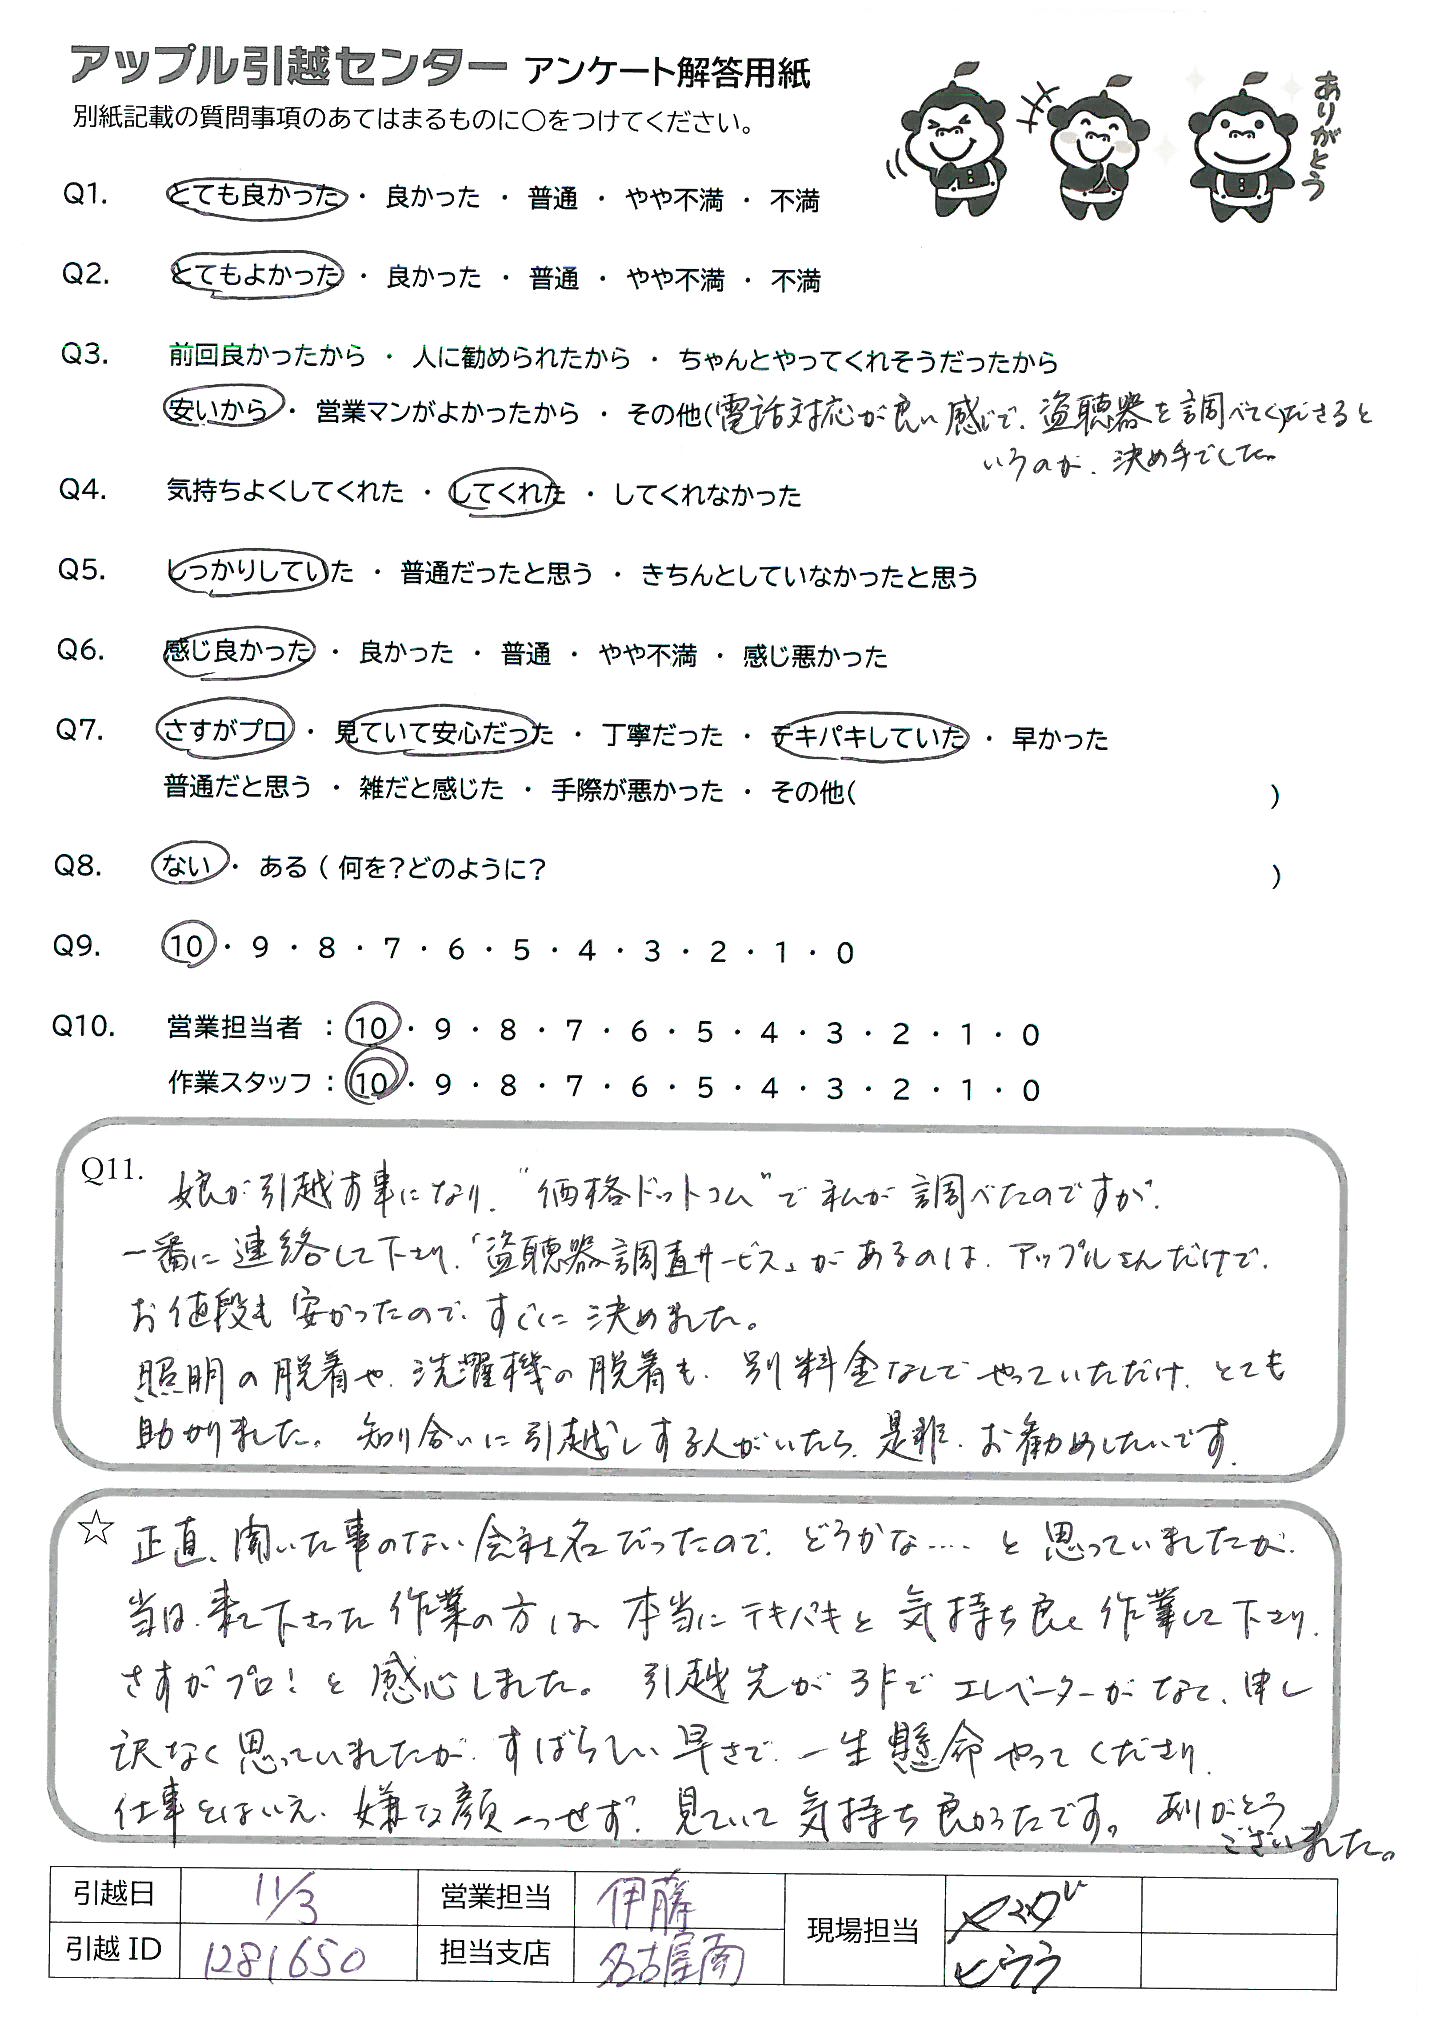 アップル引越センター アンケート解答用紙
別紙記載の質問事項のあてはまるものに○をつけてください。
ありがとう
Q1. とても良かった ・ 良かった ・ 普通 ・ やや不満 ・ 不満
Q2. とてもよかった ・ 良かった ・ 普通 ・ やや不満 ・ 不満
Q3. 前回良かったから ・ 人に勧められたから ・ ちゃんとやってくれそうだったから
安いから ・ 営業マンがよかったから ・ その他(電話対応が良い感じで、盗聴器を調べてくださると
いうのが、決め手でした。
Q4. 気持ちよくしてくれた ・ してくれた ・ してくれなかった
Q5. しっかりしていた ・ 普通だったと思う ・ きちんとしていなかったと思う
Q6. 感じ良かった ・ 良かった ・ 普通 ・ やや不満 ・ 感じ悪かった
Q7. さすがプロ ・ 見ていて安心だった ・ 丁寧だった ・ テキパキしていた ・ 早かった
普通だと思う ・ 雑だと感じた ・ 手際が悪かった ・ その他( )
Q8. ない ・ ある ( 何を?どのように? )
Q9. 10 ・ 9 ・ 8 ・ 7 ・ 6 ・ 5 ・ 4 ・ 3 ・ 2 ・ 1 ・ 0
Q10. 営業担当者 : 10 ・ 9 ・ 8 ・ 7 ・ 6 ・ 5 ・ 4 ・ 3 ・ 2 ・ 1 ・ 0
作業スタッフ : 10 ・ 9 ・ 8 ・ 7 ・ 6 ・ 5 ・ 4 ・ 3 ・ 2 ・ 1 ・ 0
Q11. 娘が引越す事になり、"価格ドットコム"で私が調べたのですが、
一番に連絡して下さり、「盗聴器調査サービス」があるのは、アップルさんだけで、
お値段も安かったので、すぐに決めました。
照明の脱着や、洗濯機の脱着も、別料金なしでやっていただけ、とても
助かりました。知り合いに引越しする人がいたら、是非、お勧めしたいです。
☆ 正直、聞いた事のない会社名だったので、どうかな.... と思っていましたが、
当日、来て下さった作業の方は、本当にテキパキと気持ち良く作業して下さり、
さすがプロ!と感心しました。引越先が3Fでエレベーターがなく、申し
訳なく思っていましたが、すばらしい早さで、一生懸命やってくださり、
仕事とはいえ、嫌な顔一つせず、見ていて気持ち良かったです。ありがとう
ございました。
引越日 11/3 営業担当 伊藤 現場担当
引越ID 1281650 担当支店 名古屋南 ヒラウラ